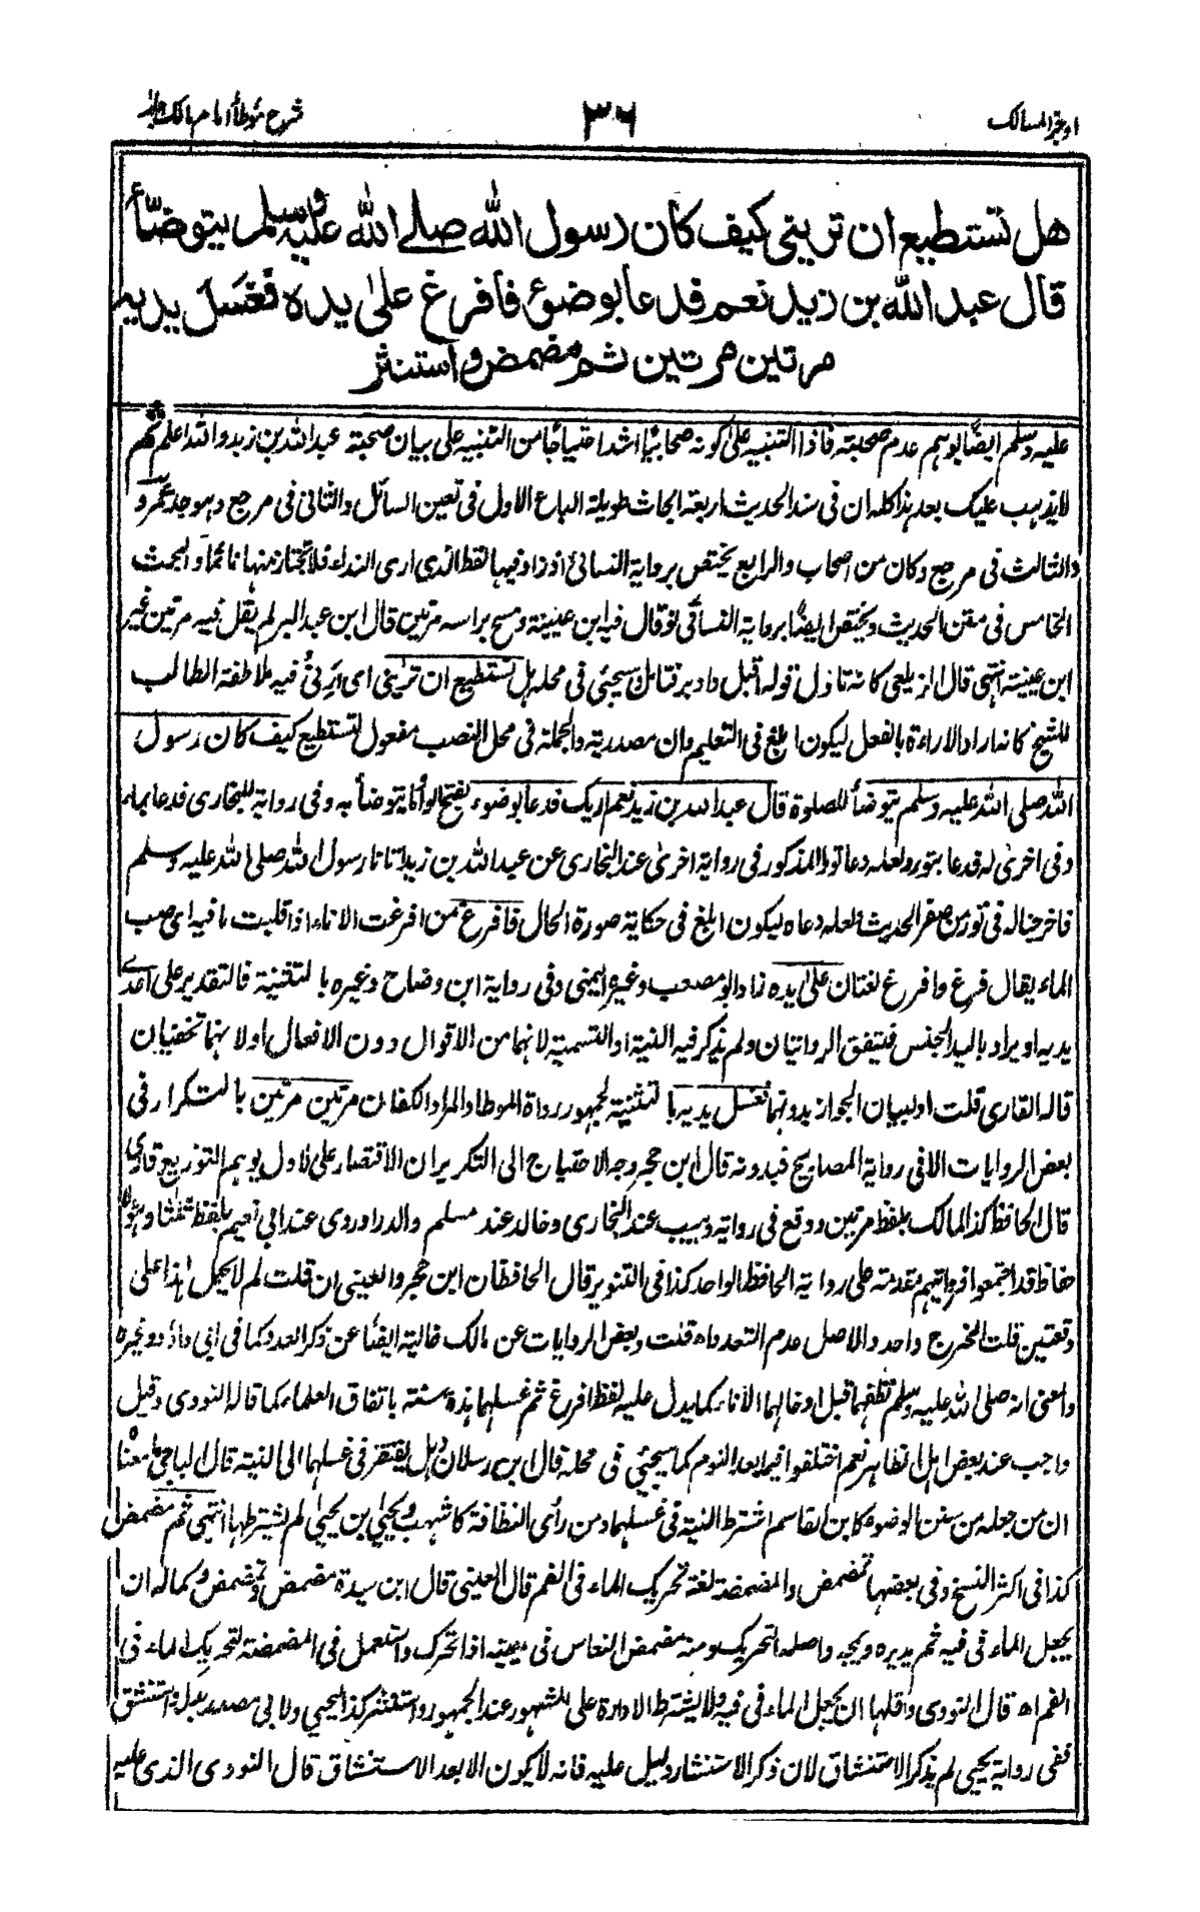 اوجز المسالك ٣٦ شرح موطأ امام مالك
هل تستطيع ان تريني كيف كان رسول الله صلے الله عليه وسلم يتوضأ
قال عبد الله بن زيد نعم فدعا بوضوء فافرغ على يده فغسل يديه
مرتين مرتين ثم مضمض واستنثر
عليه وسلم ايضًا يوهم عدم صحبته فاذا التنبيه على كونه صحابيًا اشد احتياجًا من التنبيه على بيان صحبة عبد الله بن زيد والله اعلم ثم
لا يذهب عليك بعد هذا كله ان فى سند الحديث اربعة ابحاث طويلة الباع الاول فى تعين السائل والثانى فى مرجع وهو جد عمرو
والثالث فى مرجع وكان من اصحاب والرابع يختص برواية النسائى اذ زاد فيها لفظ الذى ارى النداء فلا تجتاز منها نائمًا والبحث
الخامس فى متن الحديث ويختص ايضًا برواية النسائى لو قال فيه ابن عيينة ومسح براسه مرتين قال ابن عبد البر لم يقل فيه مرتين غير
ابن عيينة انتهى قال الزيلعى كانه تاول قوله اقبل وادبر فتامل سيجئى فى محله هل تستطيع ان ترينى اى ارنى فيه ملاطفة الطالب
للشيخ كانه اراد الاراءة بالفعل ليكون ابلغ فى التعليم وان مصدرية والجملة فى محل النصب مفعول لتستطيع كيف كان رسول
الله صلى الله عليه وسلم يتوضأ للصلوة قال عبد الله بن زيد نعم اريك فدعا بوضوء بفتح الواو ما يتوضأ به وفى رواية للبخارى فدعا بماء
وفى اخرى له فدعا بتور ولعله دعا تور المذكور فى رواية اخرى عند البخارى عن عبد الله بن زيد اتانا رسول الله صلى الله عليه وسلم
فاخرجنا له فى تور من صفر الحديث فلعله دعاه ليكون ابلغ فى حكاية صورة الحال فافرغ من افرغت الاناء اذا قلبت ما فيه اى صب
الماء يقال فرغ وافرغ لغتان على يده زاد ابو مصعب وغيره اليمنى وفى رواية ابن وضاح وغيره بالتثنية فالتقدير على احدے
يديه او يراد باليد الجنس فتتفق الروايتان ولم يذكر فيه النية او التسمية لانهما من الاقوال دون الافعال اولا نهما تخفيان
قاله القارى قلت او لبيان الجواز بدونهما فغسل يديه بالتثنية لجمهور رواة الموطا والمراد الكفان مرتين مرتين بالتكرار فى
بعض الروايات الا فى رواية المصابيح فبدونه قال ابن حجر وجه الاحتياج الى التكرير ان الاقتصار على الاول يوهم التوزيع
قال الحافظ كذا لمالك بلفظ مرتين ووقع فى رواية وهيب عند البخارى وخالد عند مسلم والدراوردى عند ابى نعيم بلفظ ثلثا وهؤلاء
حفاظ قد اجتمعوا فروايتهم مقدمة على رواية الحافظ الواحد كذا فى التنوير قال الحافظان ابن حجر والعينى ان قلت لم لا يحمل هذا على
وقعتين قلت المخرج واحد والاصل عدم التعدد اه قلت وبعض الروايات عن مالك خالية ايضًا عن ذكر العدد كما فى ابى داؤد وغيره
والمعنى انه صلى الله عليه وسلم نظفهما قبل ادخالهما الاناء كما يدل عليه لفظ افرغ ثم غسلهما هذه سنة باتفاق العلماء كما قاله النووى وقيل
واجب عند بعض اهل الظاهر نعم اختلفوا فيما بعد النوم كما سيجئى فى محله قال ابن رسلان وهل يفتقر فى غسلهما الى النية قال الباجى
ان من جعله من سنن الوضوء كابن القاسم اشترط النية فى غسلهما ومن رأى النظافة كاشهب ويحيى بن يحيى لم يشترطها انتهى ثم مضمض
كذا فى اكثر النسخ وفى بعضها تمضمض والمضمضة لغة تحريك الماء فى الفم قال العينى قال ابن سيدة مضمض وتمضمض وكماله ان
يجعل الماء فى فيه ثم يديره ويمجه واصله التحريك ومنه مضمض النعاس فى عينيه اذا تحرك واستعمل فى المضمضة لتحريك الماء فى
الفم اه قال النووى واقلها ان يجعل الماء فى فيه ولا يشترط الادارة على المشهور عند الجمهور واستنثر كذا ليحيى ولابى مصعب بدله واستنشق
ففى رواية يحيى لم يذكر الاستنشاق لان ذكر الاستنثار دليل عليه فانه لا يكون الا بعد الاستنشاق قال النووى الذى عليه